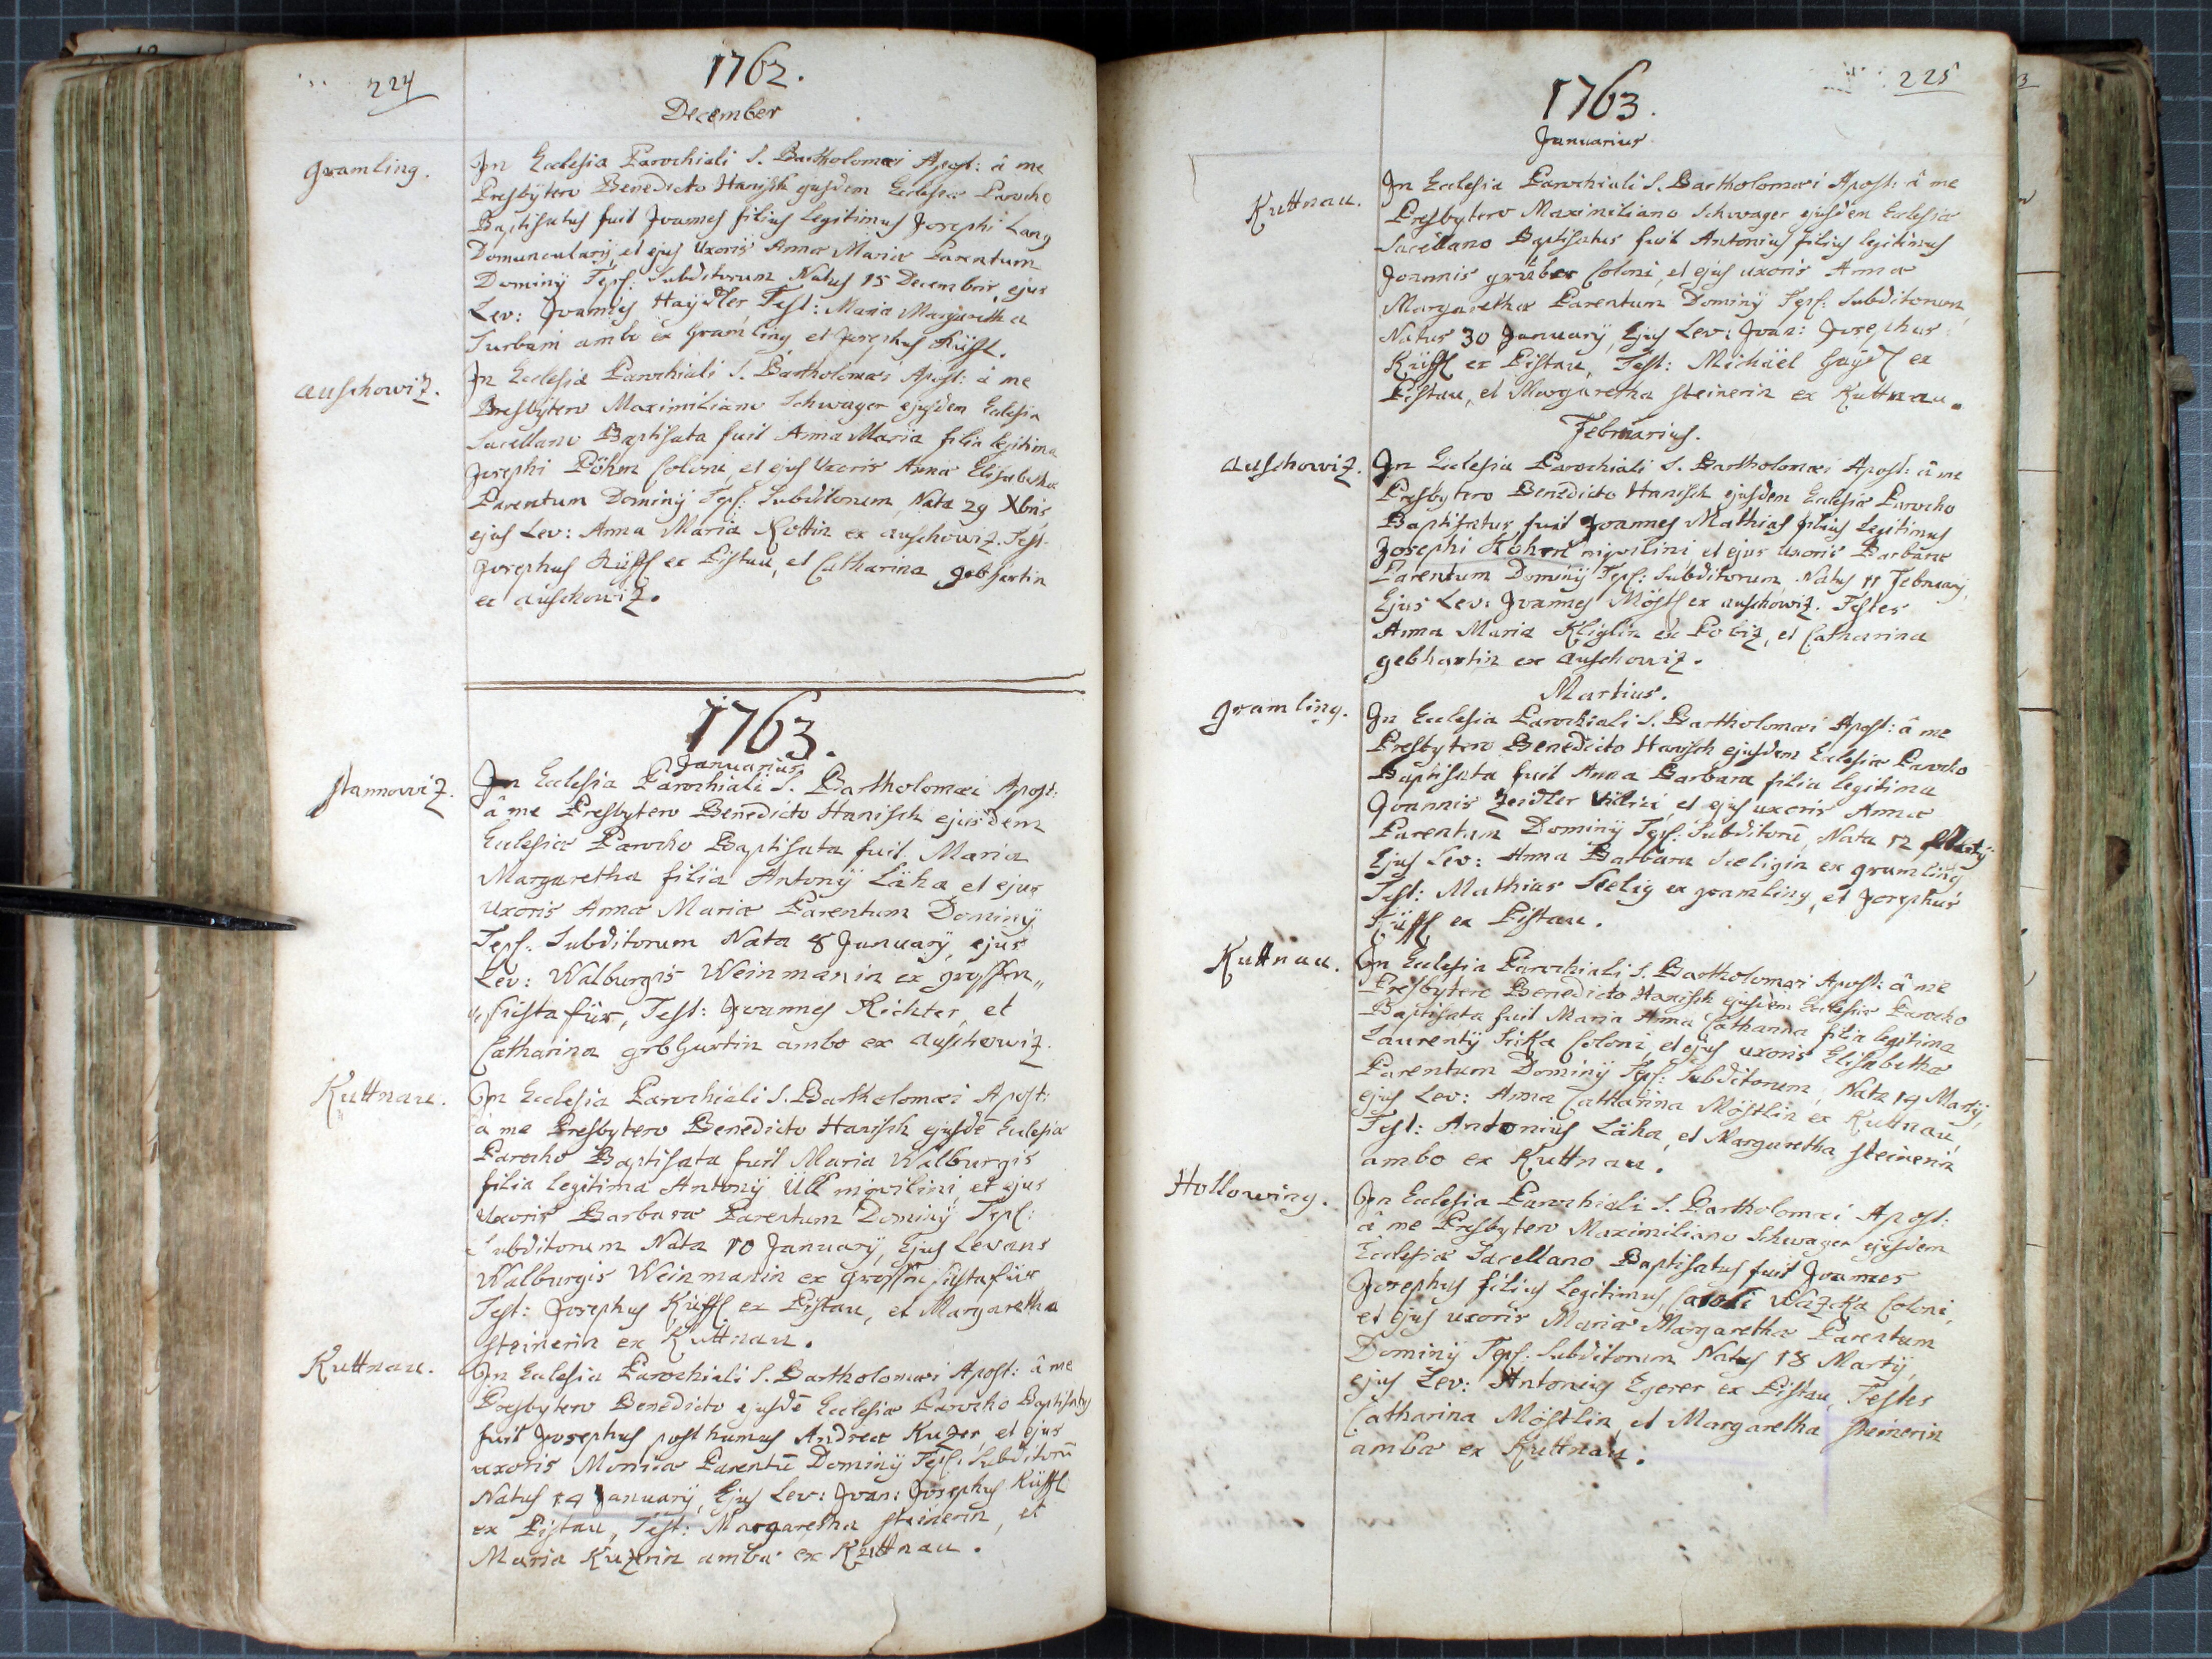 224
1762.
December
Gramling.
In Ecclesia Parochiali S. Bartholomæi Apost: â me
Presbÿtero Benedicto Hanisch ejusdem Ecclesiæ Parocho
Baptisatus fuit Joannes filius legitimus Josephi Lang
Domuncularÿ, et ejus Uxoris Annæ Mariæ Parentum
Dominÿ Tepl: Subditorum Natus 15 Decembris, ejus
Lev: Joannes Haÿdler, Test: Maria Margaretha
Surbain ambo ex Gramling et Josephus Küffl.
Auschowiz.
In Ecclesia Parochiali S. Bartholomæi Apost: â me
Presbÿtero Maximiliano Schwager ejusdem Eclesiæ
Sacellano Baptisata fuit Anna Maria filia legitima
Josephi Pöhm Coloni, et ejus Uxoris Annæ Elisabethæ
Parentum Dominÿ Tepl: Subditorum, Nata 29 Xbris
ejus Lev: Anna Maria Rottin ex Auschowiz. Test:
Josephus Küffl ex Pistau, et Catharina gebhartin
ex Auschowiz.
1763.
Januarius
Stannowiz.
In Eclesia Parochiali S. Bartholomæi Apost:
â me Presbytero Benedicto Hanisch ejusdem
Eclesiæ Parocho Baptisata fuit Maria
Margaretha filia Antonÿ Läha et ejus
Uxoris Annæ Mariæ Parentum Dominÿ
Tepl: Subditorum Nata 8 Januarÿ, ejus
Lev: Walburgis Weinmanin ex grossen„
„sichtafür, Test: Joannes Richter, et
Catharina gebhartin ambo ex Auschowiz.
Kuttnau.
In Ecclesia Parochiali S. Bartholomæi Apost:
â me Presbytero Benedicto Hanisch ejusdē Eclesiæ
Parocho Baptisata fuit Maria Walburgis
filia legitima Antonÿ Ull inquilini, et ejus
Uxoris Barbaræ Parentum Dominÿ Tepl:
Subditorum Nata 10 Januarÿ, Ejus Levans
Walburgis Weinmanin ex grossen sichtafür
Test: Josephus Küffl ex Pistau, et Margaretha
Steinerin ex Kuttnau.
Kuttnau.
In Eclesia Parochiali S. Bartholomæi Apost: â me
Presbytero Benedicto ejusdē Ecclesiæ Parocho Baptisatus
fuit Josephus posthumus Andreæ Kuzer, et ejus
uxoris Monicæ Parentū Dominÿ Tepl: Subditorū
Natus 14 Januarÿ, Ejus Lev: Joan: Josephus Küffl
ex Pistau, Test: Margaretha Steinerin, et
Maria Kuzerin ambæ ex Kuttnau.
225
1763.
Januarius
Kuttnau.
In Ecclesia Parochiali S. Bartholomæi Apost: â me
Presbytero Maximiliano Schwager ejusdem Eclesiæ
Sacellano Baptisatus fuit Antonius filius legitimus
Joannis grüber Coloni, et ejus uxoris Annæ
Margarethæ Parentum Dominÿ Tepl: Subditorum,
Natus 30 Januarÿ, Ejus Lev: Joan: Josephus
Küffl ex Pistau, Test: Michäel Haÿdl ex
Pistau, et Margaretha Steinerin ex Kuttnau.
Februarius.
Auschowiz.
In Eclesia Parochiali S. Bartholomæi Apost: â me
Presbytero Benedicto Hanisch ejusdem Ecclesiæ Parocho
Baptisatus fuit Joannes Mathias filius legitimus
Josephi Köhrn inquilini et ejus uxoris Barbaræ
Parentum Dominÿ Tepl: Subditorum Natus 11 Februarÿ,
Ejus Lev: Joannes Möstl ex Auschowiz. Testes
Anna Maria Kliglin ex Pobiz, et Catharina
gebhartin ex Auschowiz.
Martius.
Gramling.
In Ecclesia Parochiali S. Bartholomæi Apost: â me
Presbytero Benedicto Hanisch ejusdem Eclesiæ Parocho
Baptisata fuit Anna Barbara filia legitima
Joannis Zeidler Villici, et ejus uxoris Annæ
Parentum Dominÿ Tepl: Subditorū, Nata 12 Martÿ
Ejus Lev: Anna Barbara Seeligin ex gramling
Test: Mathias Seelig ex gramling, et Josephus
Küffl ex Pistau.
Kuttnau.
In Eclesia Parochiali S. Bartholomæi Apost: â me
Presbytero Benedicto Hanisch ejusdem Ecclesiæ Parocho
Baptisata fuit Maria Anna Catharina filia legitima
Laurentÿ Sicka Coloni, et ejus uxoris Elisabethæ
Parentum Dominÿ Tepl: Subditorum, Nata 14 Martÿ,
ejus Lev: Anna Catharina Möstlin ex Kuttnau,
Test: Antonius Läha, et Margaretha Steinerin
ambo ex Kuttnau.
Hollowing.
In Eclesia Parochiali S. Bartholomæi Apost:
â me Presbytero Maximiliano Schwager ejusdem
Ecclesiæ Sacellano Baptisatus fuit Joannes
Josephus filius legitimus, Caroli Wazka Coloni,
et ejus uxoris Mariæ Margarethæ Parentum
Dominÿ Tepl: Subditorum Natus 18 Martÿ,
ejus Lev: Antonius Egerer ex Pistau, Testes
Catharina Möstlin, et Margaretha Steinerin
ambæ ex Kuttnau.